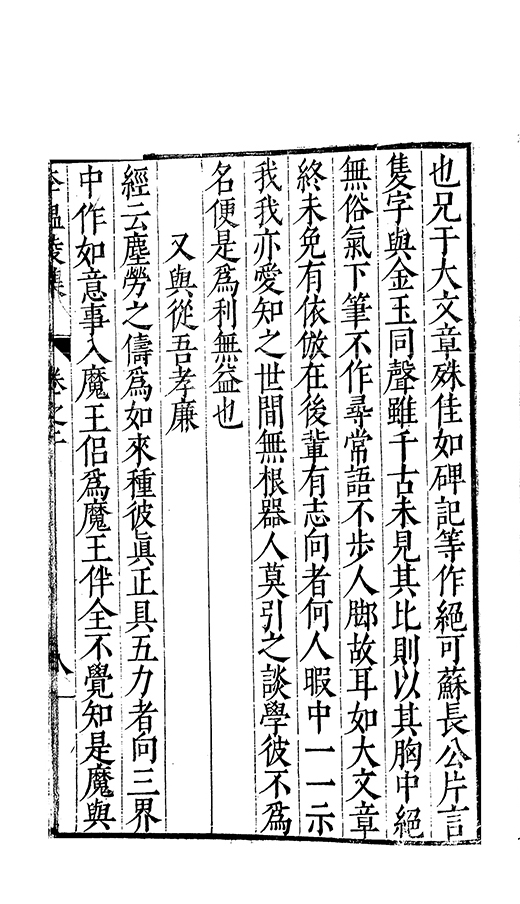 也兄于大文章殊佳如碑記等作絕可蘇長公片言
隻字與金玉同聲雖千古未見其比則以其胸中絕
無俗氣下筆不作尋常語不步人脚故耳如大文章
終未免有依倣在後輩有志向者何人暇中一一示
我我亦愛知之世間無根器人莫引之談學彼不爲
名便是爲利無益也
又與從吾孝廉
經云塵勞之儔爲如來種彼眞正具五力者向三界
中作如意事入魔王侶爲魔王伴全不覺知是魔與
李溫陵集
卷之
八